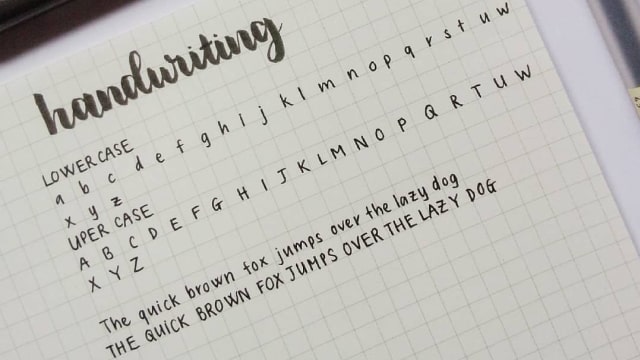 handwriting
LOWERCASE
a b c d e f g h I j k l m n o p q r s t u w
x y z
UPER CASE
A B C D E F G H I J K L M N O P Q R T U W
X Y Z
The quick brown fox jumps over the lazy dog
THE QUICK BROWN FOX JUMPS OVER THE LAZY DOG